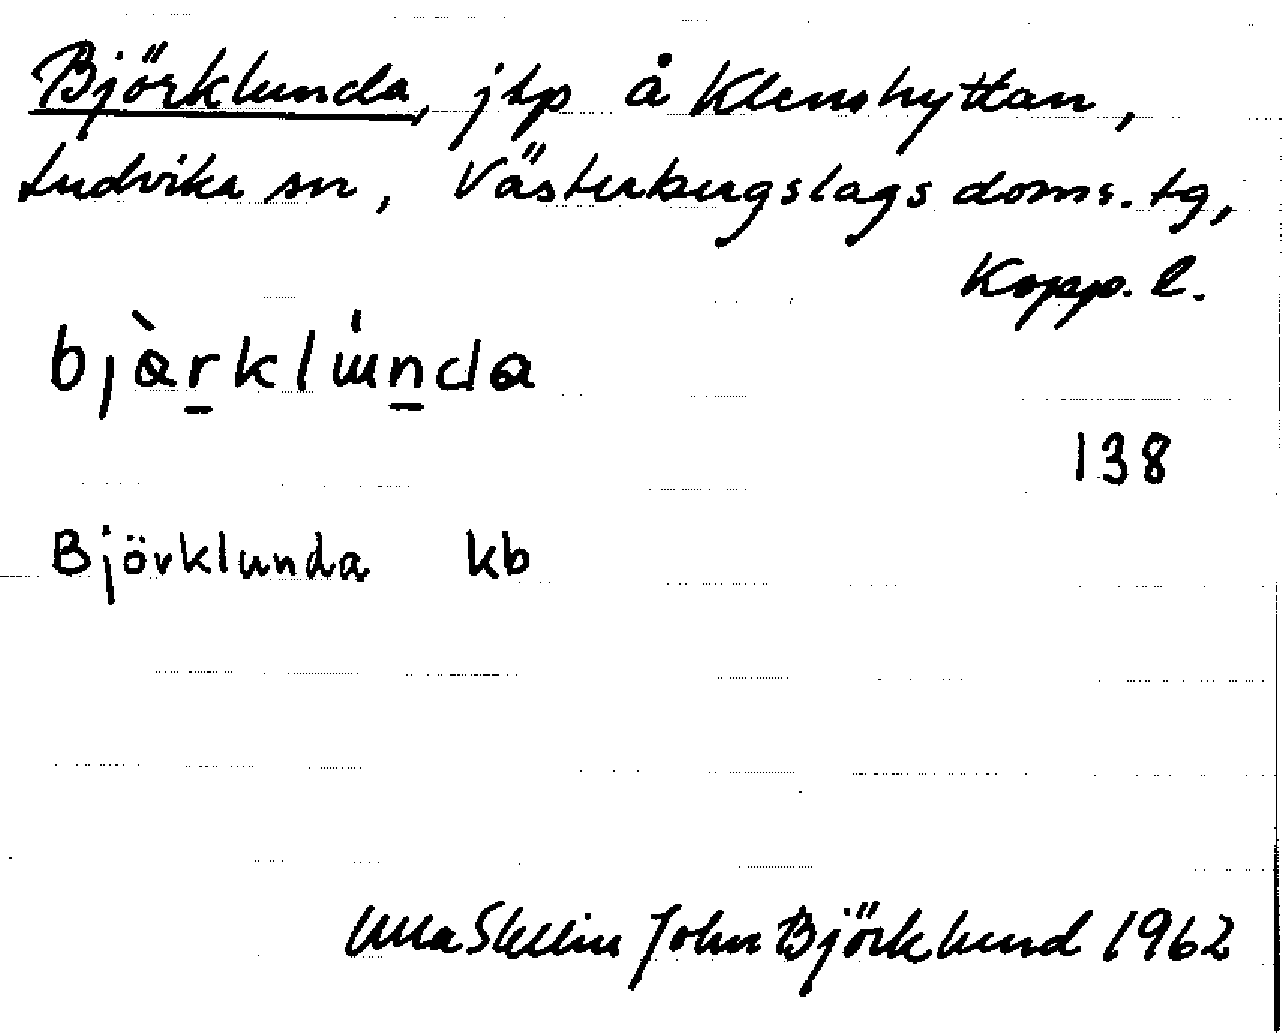 Björklunda, jtp å Klenshyttan,
Ludvika sn, Västerbergslags doms. tg,
Kopp. l.
bjàrklu̇nda
138
Björklunda kb
Ulla Stellin John Björklund 1962